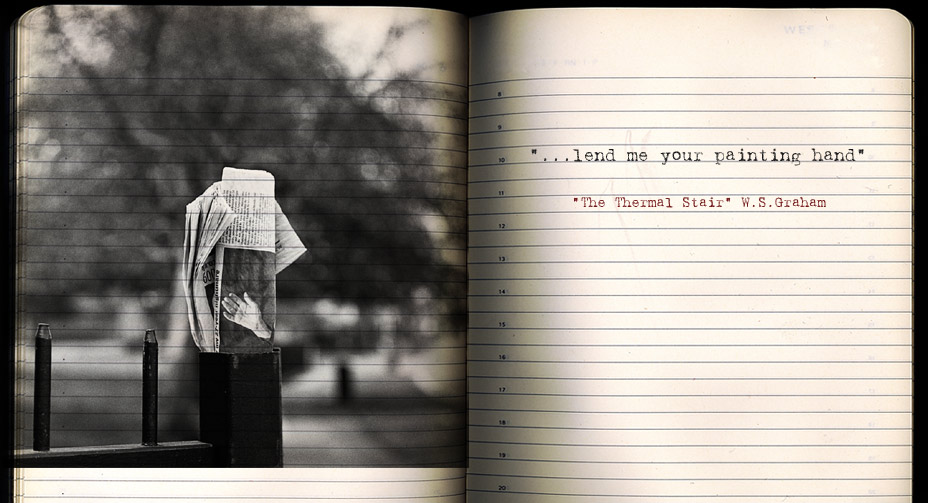 8
9
"...lend me your painting hand"
10
11
"The Thermal Stair" W.S.Graham
12
13
14
15
16
17
18
19
20